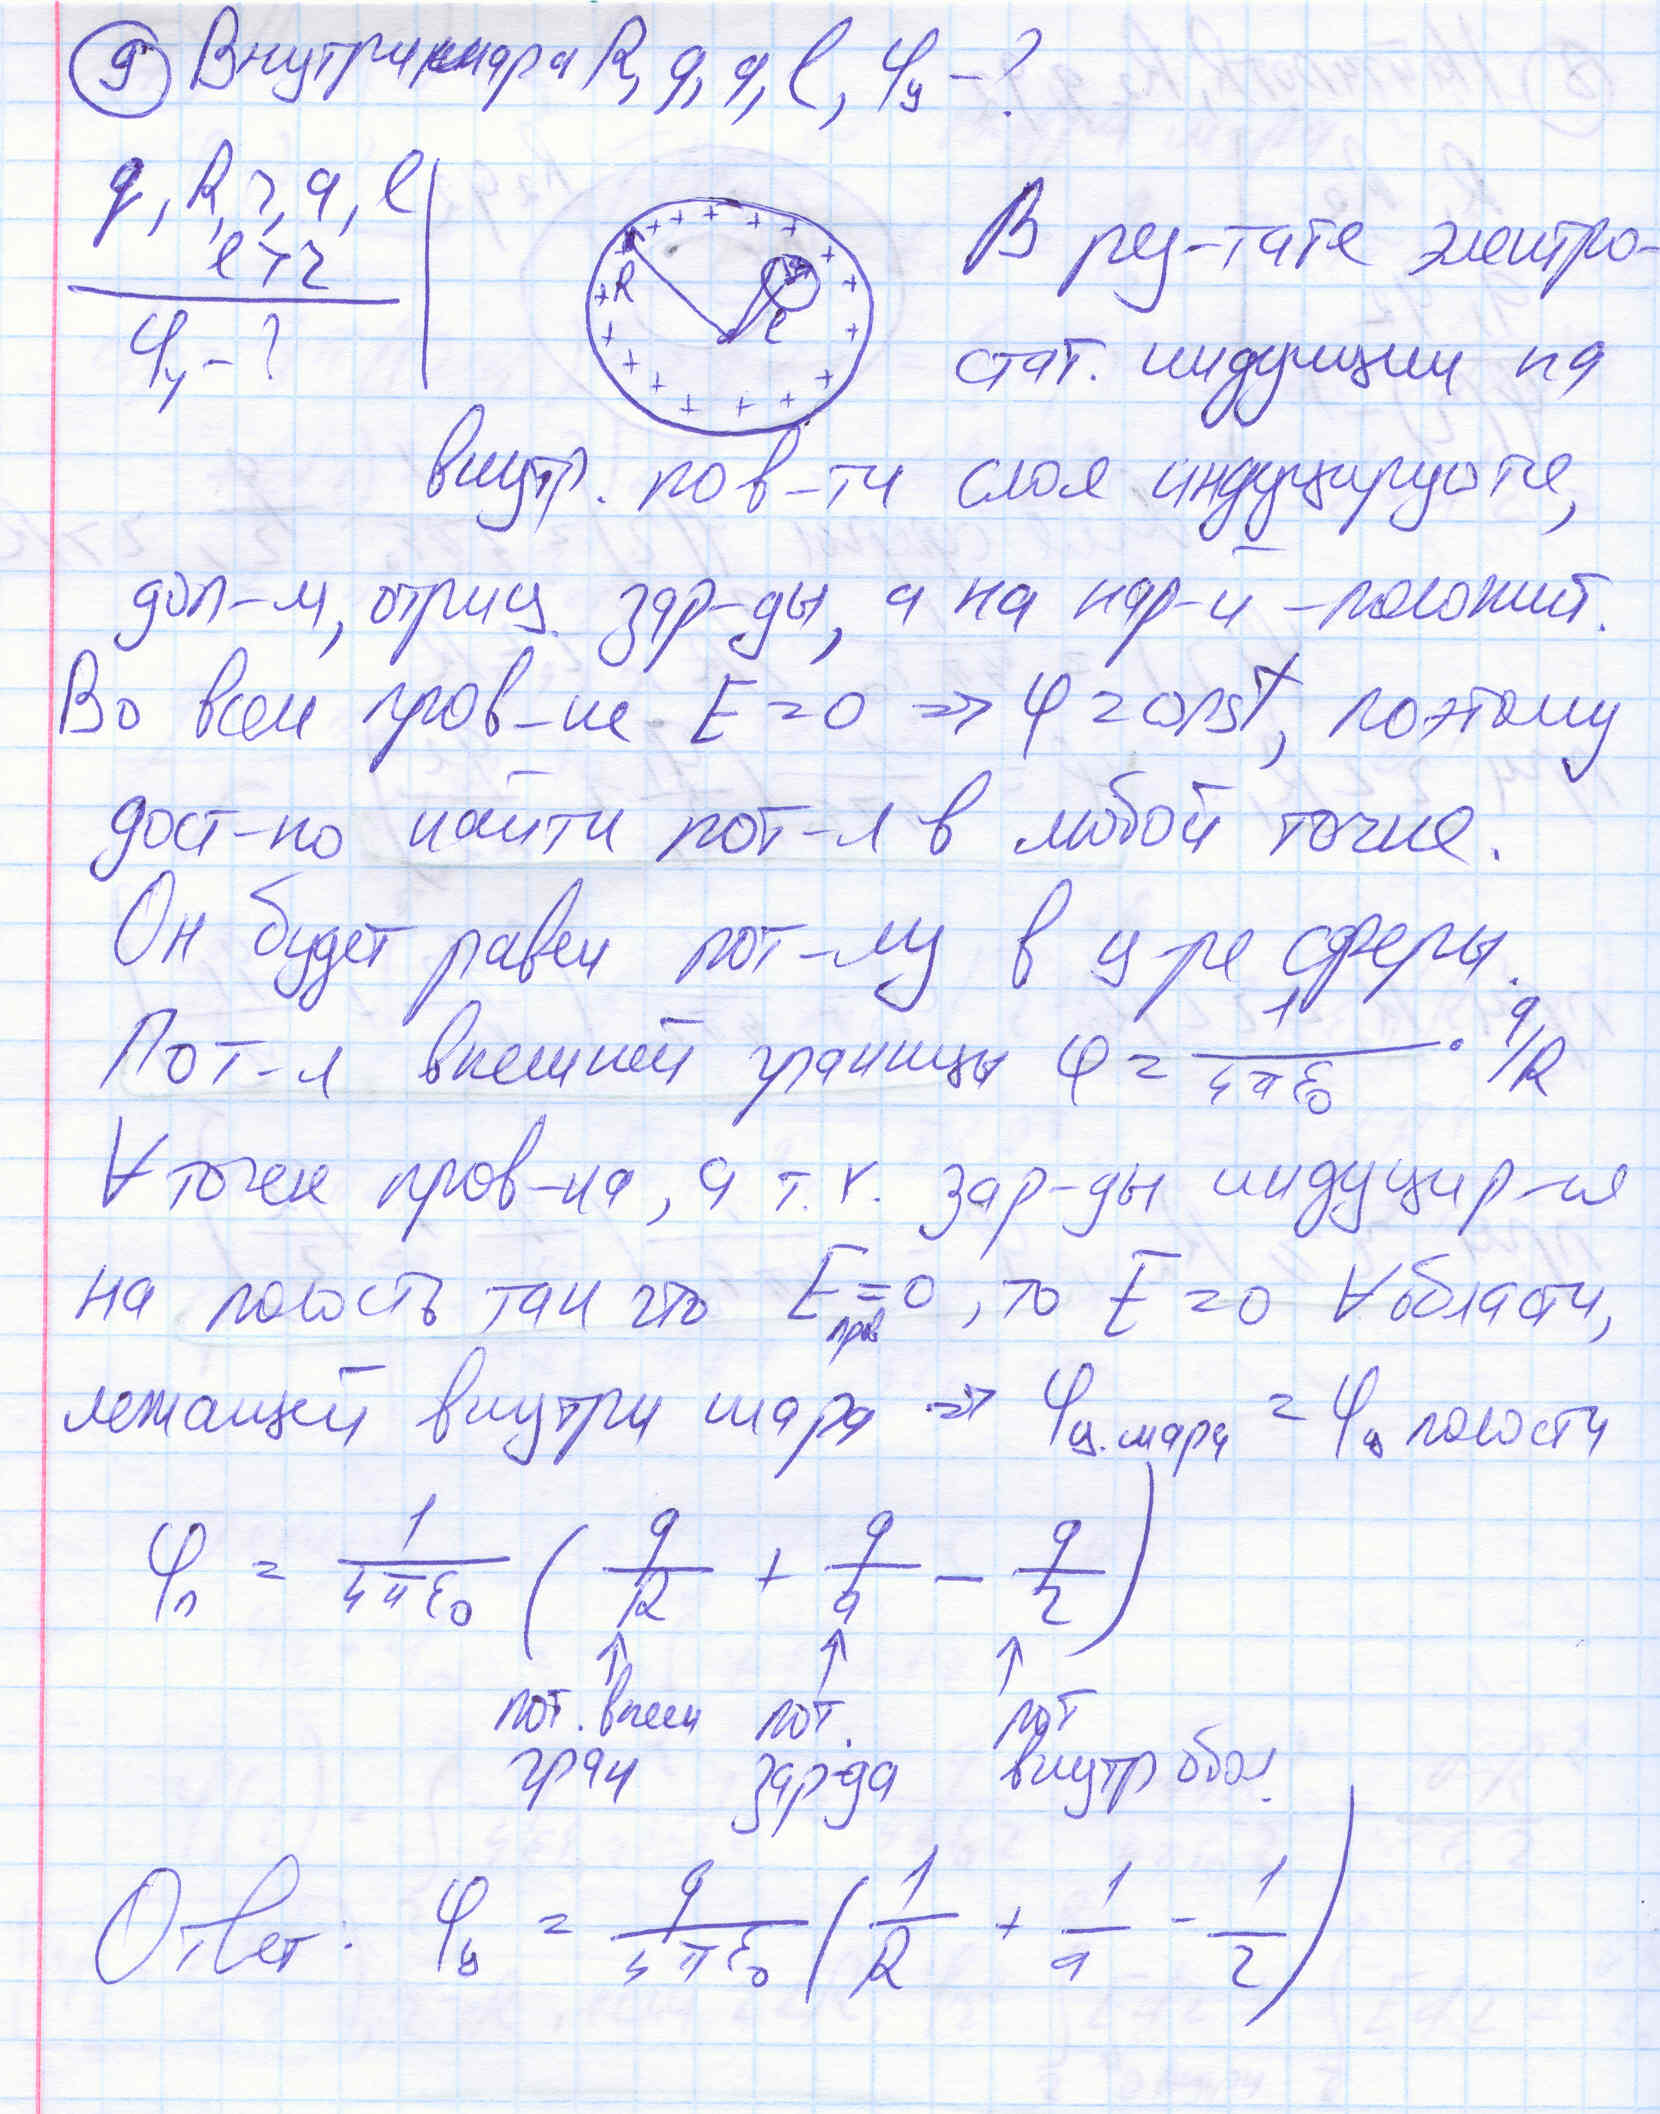 9 Внутри шара R, q, a, l, φц - ?
q, R, r, a, l
l > r
φц - ?
R
l
В рез-тате электро-
стат. индукции на
внутр. пов-ти слоя индуцируются,
доп-м, отриц. зар-ды, а на нар-й - положит.
Во всем пров-ке E = 0 => φ = const, поэтому
дост-но найти пот-л в любой точке.
Он будет равен пот-лу в ц-ре сферы.
Пот-л внешней границы φ = 1/4πε0 · q/R
∀ точек пров-ка, а т.к. зар-ды индуцир-ся
на полость так что Eпров = 0, то E = 0 ∀ области,
лежащей внутри шара => φц. шара = φц полости
φп = 1/4πε0 ( q/R + q/a - q/r )
↑ ↑ ↑
пот. внеш пот. пот
гран зар-да внутр обол.
Ответ: φц = q/4πε0 ( 1/R + 1/a - 1/r )